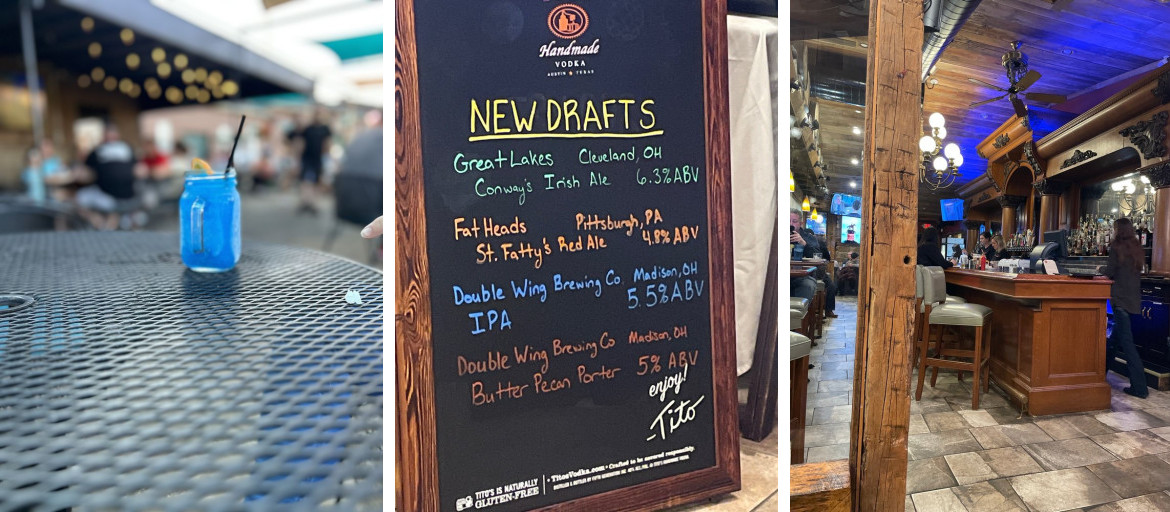 Handmade
VODKA
AUSTIN ★ TEXAS
NEW DRAFTS
Great Lakes Cleveland, OH
Conway's Irish Ale 6.3% ABV
Fat Heads Pittsburgh, PA
St. Fatty's Red Ale 4.8% ABV
Double Wing Brewing Co. Madison, OH
IPA 5.5% ABV
Double Wing Brewing Co Madison, OH
Butter Pecan Porter 5% ABV
enjoy!
-Tito
TITO'S IS NATURALLY
GLUTEN-FREE
• TitosVodka.com • Crafted to be savored responsibly.